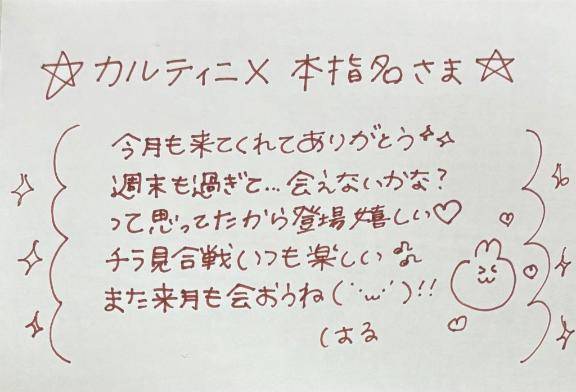 ☆カルティニ× 本指名さま☆
今月も来てくれてありがとう✨
週末も過ぎて…会えないかな?
って思ってたから登場嬉しい♡
チラ見合戦いつも楽しい♫
また来月も会おうね(˙ω˙)!!
はる